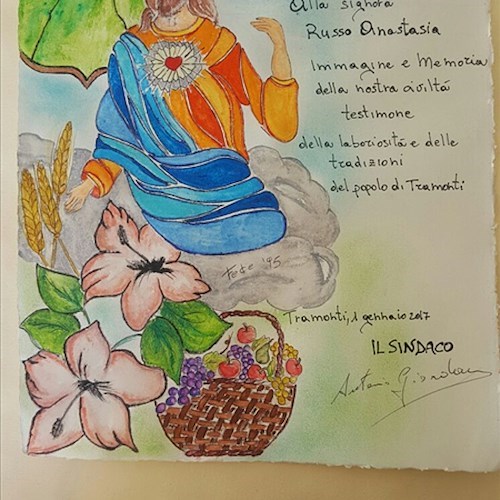 Alla signora
Russo Anastasia
Immagine e Memoria
della nostra civiltá
testimone
della laboriositá e delle
tradizioni
del popolo di Tramonti
'95
Tramonti, 1 gennaio 2017
IL SINDACO
Antonio Giordano